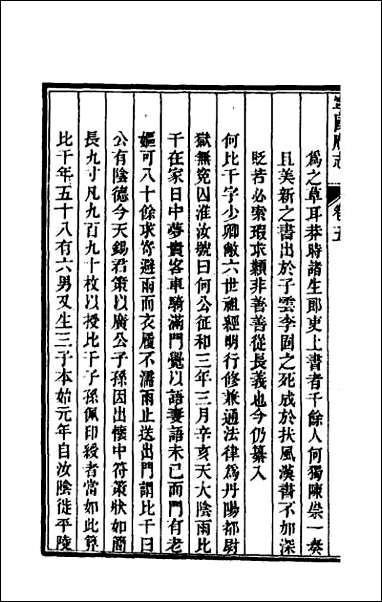 寧國府志 卷五
為之草耳莽時諸生郎吏上書者千餘人何獨陳崇一奏
且美新之書出於子雲李固之死成於扶風漢書不加深
貶者必索瑕求類非善善從長義也今仍纂入
何比干字少卿敞六世祖經明行修兼通法律為丹陽都尉
獄無冤囚淮汝號曰何公征和三年三月辛亥天大陰雨比
干在家日中夢貴客車騎滿門覺以語妻語未已而門有老
嫗可八十餘求寄避雨而衣履不濡雨止送出門謂比干曰
公有陰德今天錫君策以廣公子孫因出懷中符策狀如簡
長九寸凡九百九十枚以授比干子孫佩印綬者當如此算
比干年五十八有六男又生三子本始元年自汝陰徙平陵